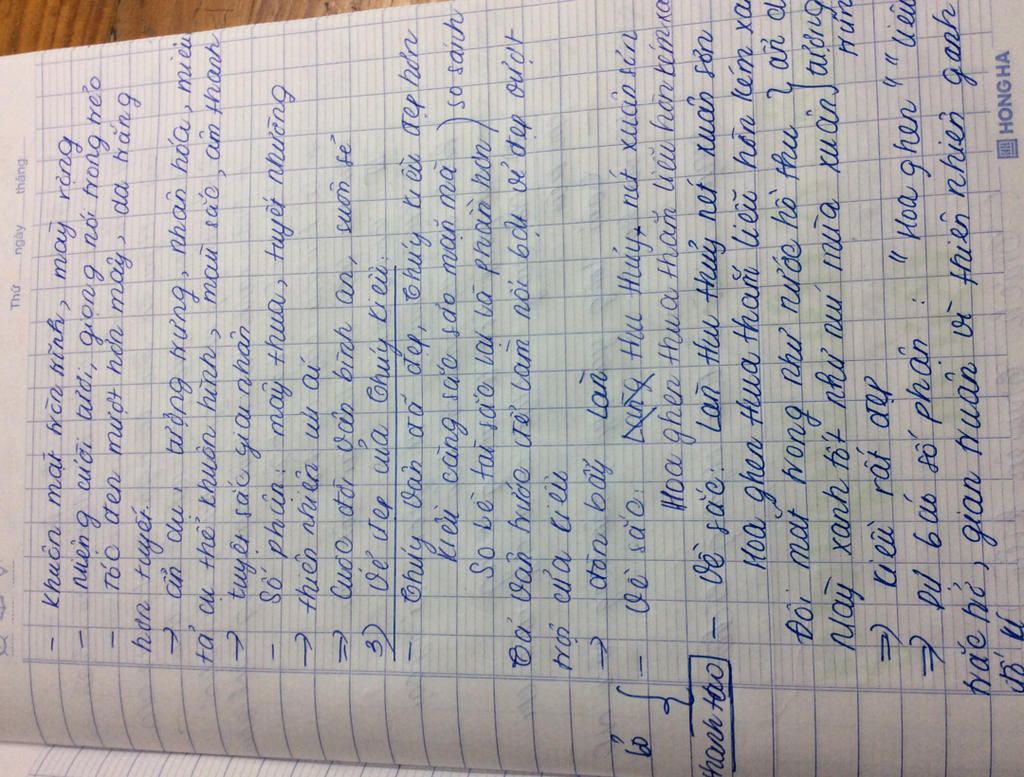 Thứ ngày tháng
- Khuôn mặt tròn trĩnh, mày rộng
- Miệng cười tươi, giọng nói trong trẻo
- Tóc đen mượt hơn mây, da trắng
hơn tuyết.
→ ẩn dụ, tượng trưng, nhân hóa, miêu
tả cụ thể khuôn hình, màu sắc, âm thanh
→ tuyệt sắc giai nhân
- Số phận: mây thua, tuyết nhường
→ thiên nhiên ưu ái
⇒ Cuộc đời Vân bình an, suôn sẻ
3) Vẻ đẹp của Thúy Kiều.
- Thúy Vân đã đẹp, Thúy Kiều đẹp hơn
Kiều càng sắc sảo mặn mà ) so sánh
So bề tài sắc lại là phần hơn )
Tả Vân trước để làm nổi bật vẻ đẹp vượt
trội của Kiều
→ đòn bẩy Làn
- Vẻ sắc: thu thủy, nét xuân sơn
Hoa ghen thua thắm liễu hờn kém xa
bỏ {
thanh tao
- Vẻ sắc: Làn thu thuỷ nét xuân sơn
Hoa ghen thua thắm liễu hờn kém xa
Đôi mắt trong như nước hồ thu } ẩn d
Mày xanh tốt như núi mùa xuân } tượng
trưn
⇒ Kiều rất đẹp
⇒ Dự báo số phận: "Hoa ghen" "liễu
trắc trở, gian truân vì thiên nhiên ganh
đố kị
HONG HA